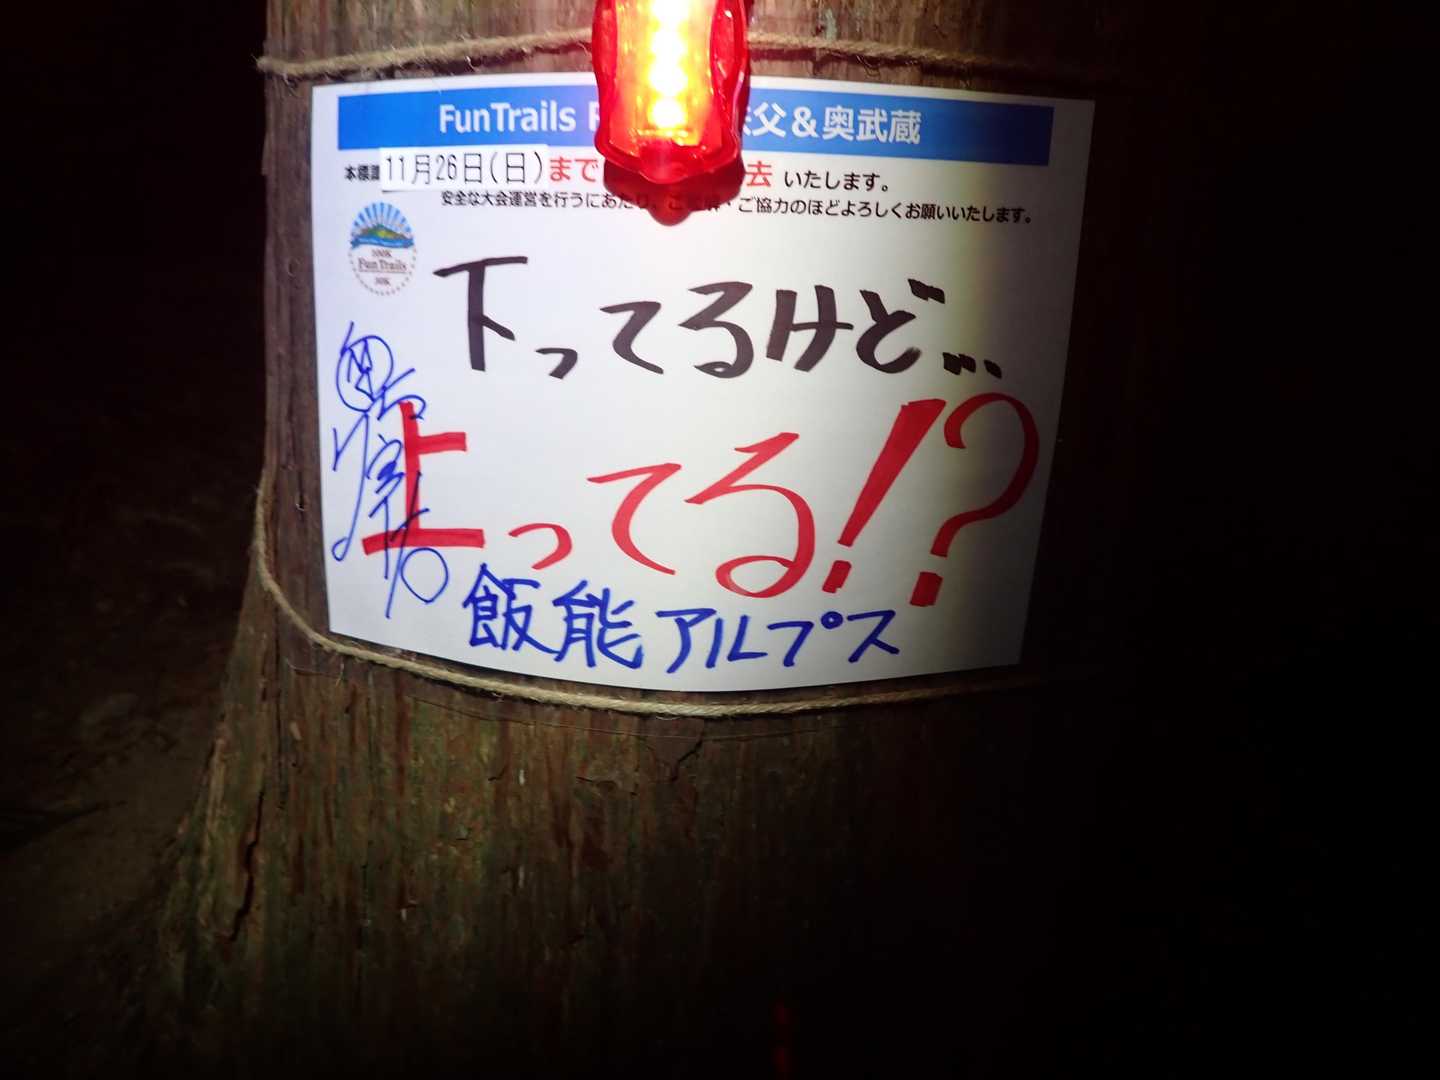 FunTrails 父＆奥武蔵
本標識 11月26日(日)まで 去 いたします。
安全な大会運営を行うにあたり、ご ・ご協力のほどよろしくお願いいたします。
100K
FunTrails
50K
下ってるけど…
上ってる!?
飯能アルプス